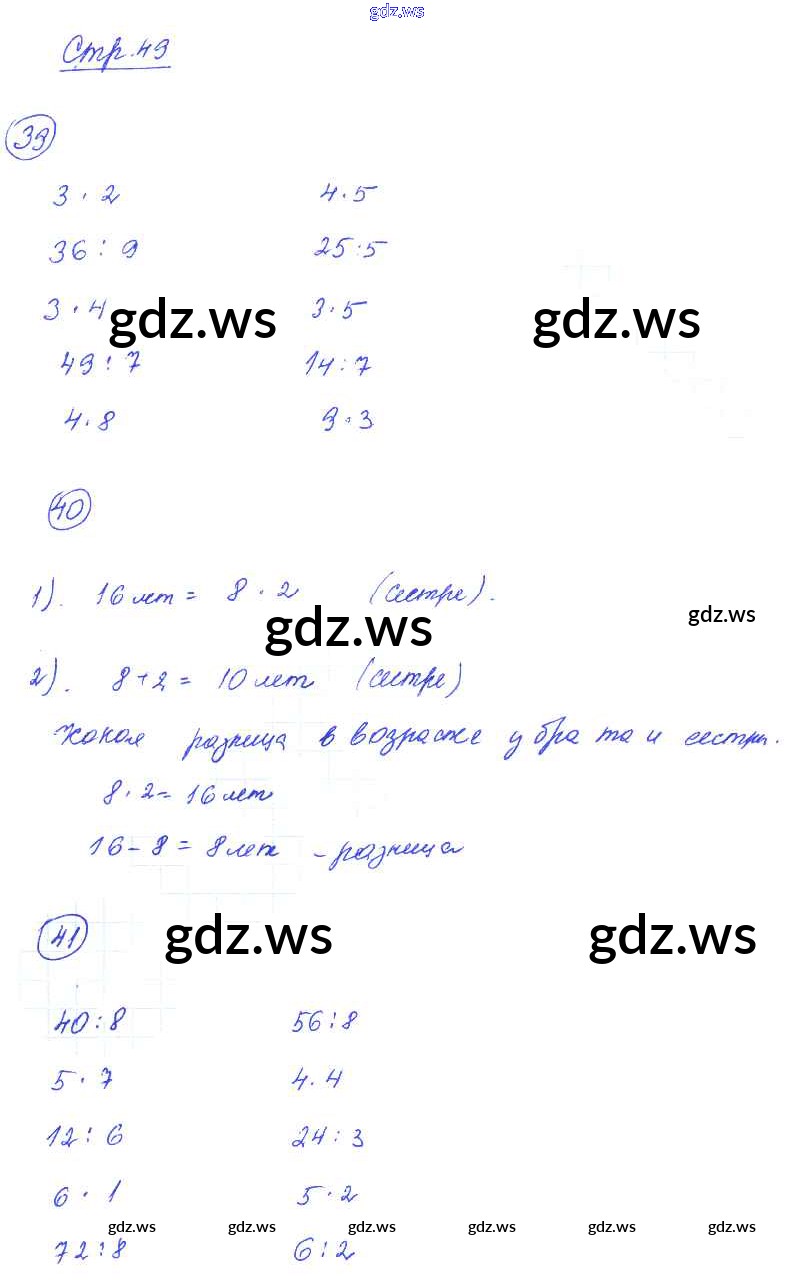 gdz.ws
Стр. 49
39
3 · 2 4 · 5
36 : 9 25 : 5
3 · 4 3 · 5
gdz.ws gdz.ws
49 : 7 14 : 7
4 · 8 9 · 3
40
1). 16 лет = 8 · 2 (сестре).
gdz.ws gdz.ws
2). 8 + 2 = 10 лет (сестре)
Какая разница в возрасте у брата и сестры.
8 · 2 = 16 лет
16 - 8 = 8 лет - разница
41
gdz.ws gdz.ws
40 : 8 56 : 8
5 · 7 4 · 4
12 : 6 24 : 3
6 · 1 5 · 2
gdz.ws gdz.ws gdz.ws gdz.ws gdz.ws gdz.ws
72 : 8 6 : 2